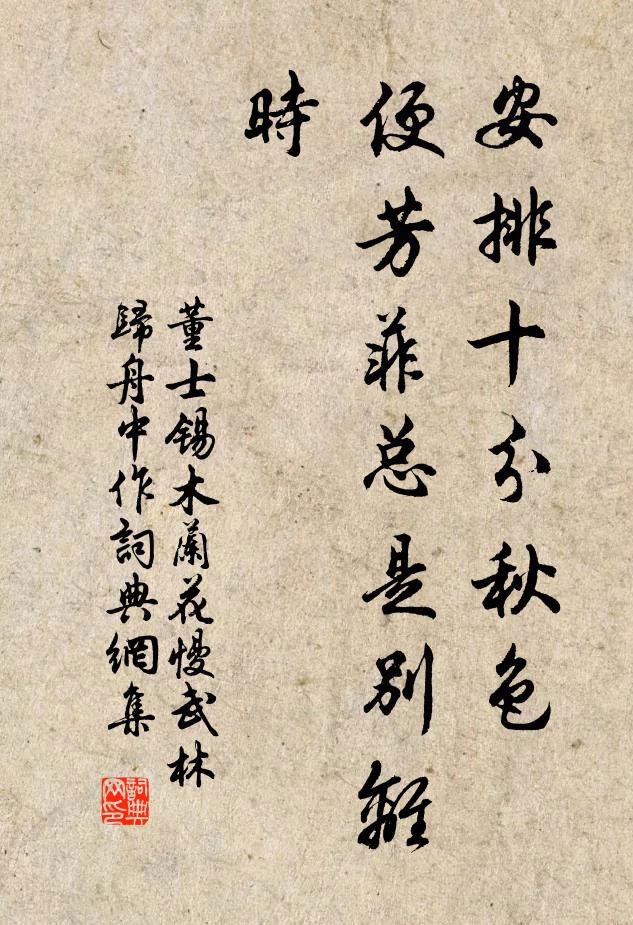 安排十分秋色
便芳菲总是别離
時
董士锡木蘭花慢武林
歸舟中作詞典網集
詞典
网印